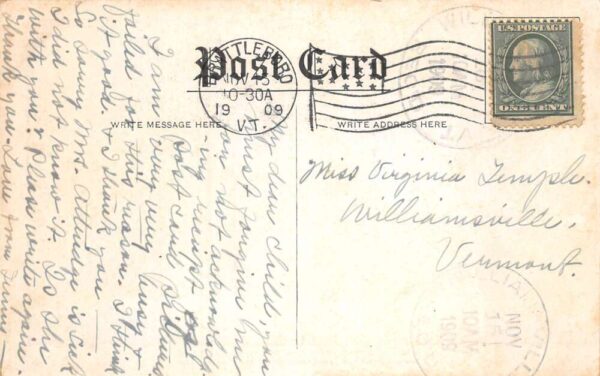 Post Card
BRATTLEBORO
NOV 15
10-30A
1909
VT.
U.S. POSTAGE
ONE CENT
WRITE MESSAGE HERE
WRITE ADDRESS HERE
Miss Virginia Temple.
Williamsville,
Vermont.
NOV
15
10AM
1909
My dear Child, you
must forgive me
for not acknowledg-
ing receipt of
Post card Pillow
I am very very busy &
failed for this reason. I think
it good. & thank you
So sorry Mrs. Attridge is sick
I did not know it. Is she
with you? Please write again.
Thank you. Love from